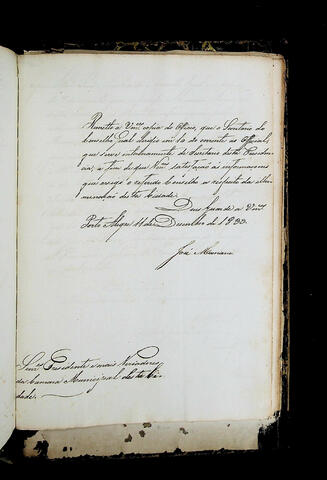 Remetto a Vmces copia do Officio, que o Secretario do
Conselho Geral dirigio em 10 do corrente ao Official,
que serve interinamente de Secretario desta Provin-
cia, a fim de que Vmces satisfação as informaçoens
que exige o referido Conselho a respeito da illu-
minação desta Cidade.
Deos Guarde a Vmces
Porto Alegre 11 de Dezembro de 1833.
José Mariani
Senres Presidente e mais Vereadores
da Camara Municipal desta Ci-
dade.